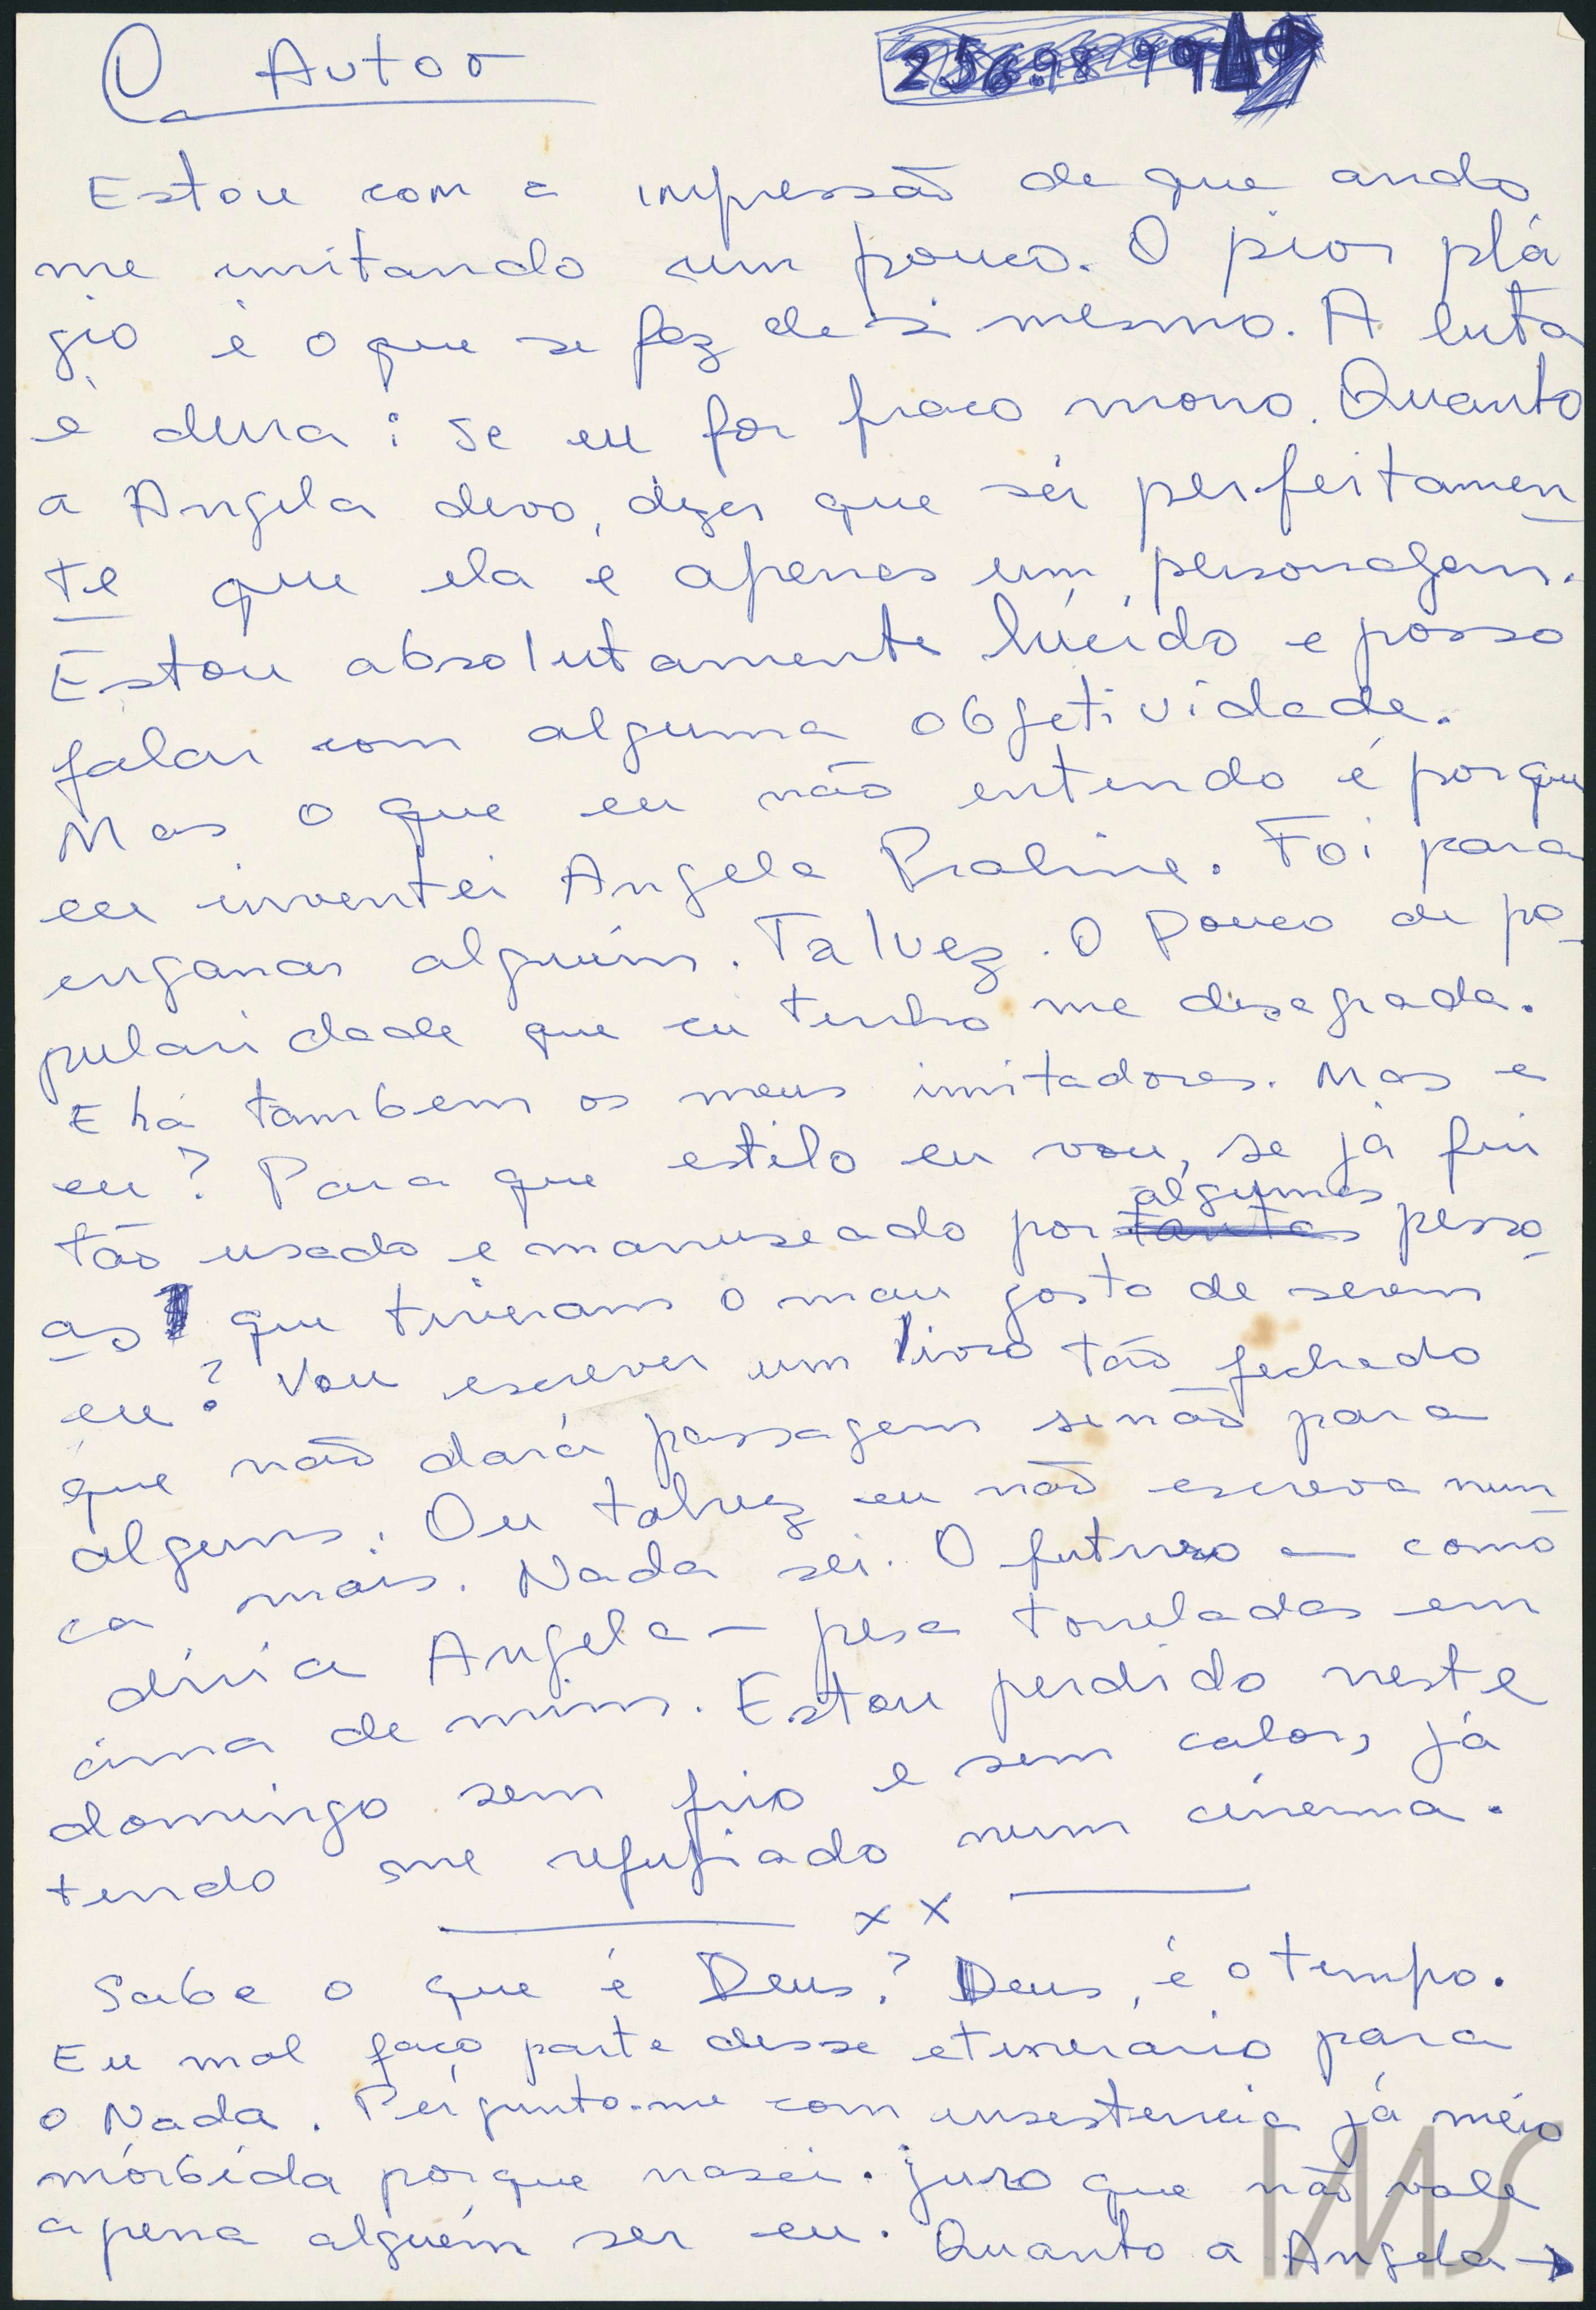 O Autor
Estou com a impressão de que ando
me imitando um pouco. O pior plá
gio é o que se faz de si mesmo. A luta
é dura: se eu for fraco morro. Quanto
a Angela devo, dizer que sei perfeitamen
te que ela é apenas um personagem.
Estou absolutamente lúcido e posso
falar com alguma objetividade.
Mas o que eu não entendo é porque
eu inventei Angela Praline. Foi para
enganar alguém. Talvez. O pouco de po-
pularidade que eu tenho me desagrada.
E há tambem os meus imitadores. Mas e
eu? Para que estilo eu vou, se já fui
algumas
tão usado e manuseado por tantas pesso-
as que tiveram o mau gosto de serem
eu? Vou escrever um livro tão fechado
que não dará passagem senão para
alguns. Ou talvez eu não escreva nun-
ca mais. Nada sei. O futuro — como
diria Angela — pesa toneladas em
cima de mim. Estou perdido neste
domingo sem frio e sem calor, já
tendo me refugiado num cinema.
x x
Sabe o que é Deus? Deus, é o tempo.
Eu mal faço parte desse etinerário para
o Nada. Pergunto-me com insestencia já meio
mórbida porque nasci. Juro que não vale
a pena alguém ser eu. Quanto a Angela →
IMS